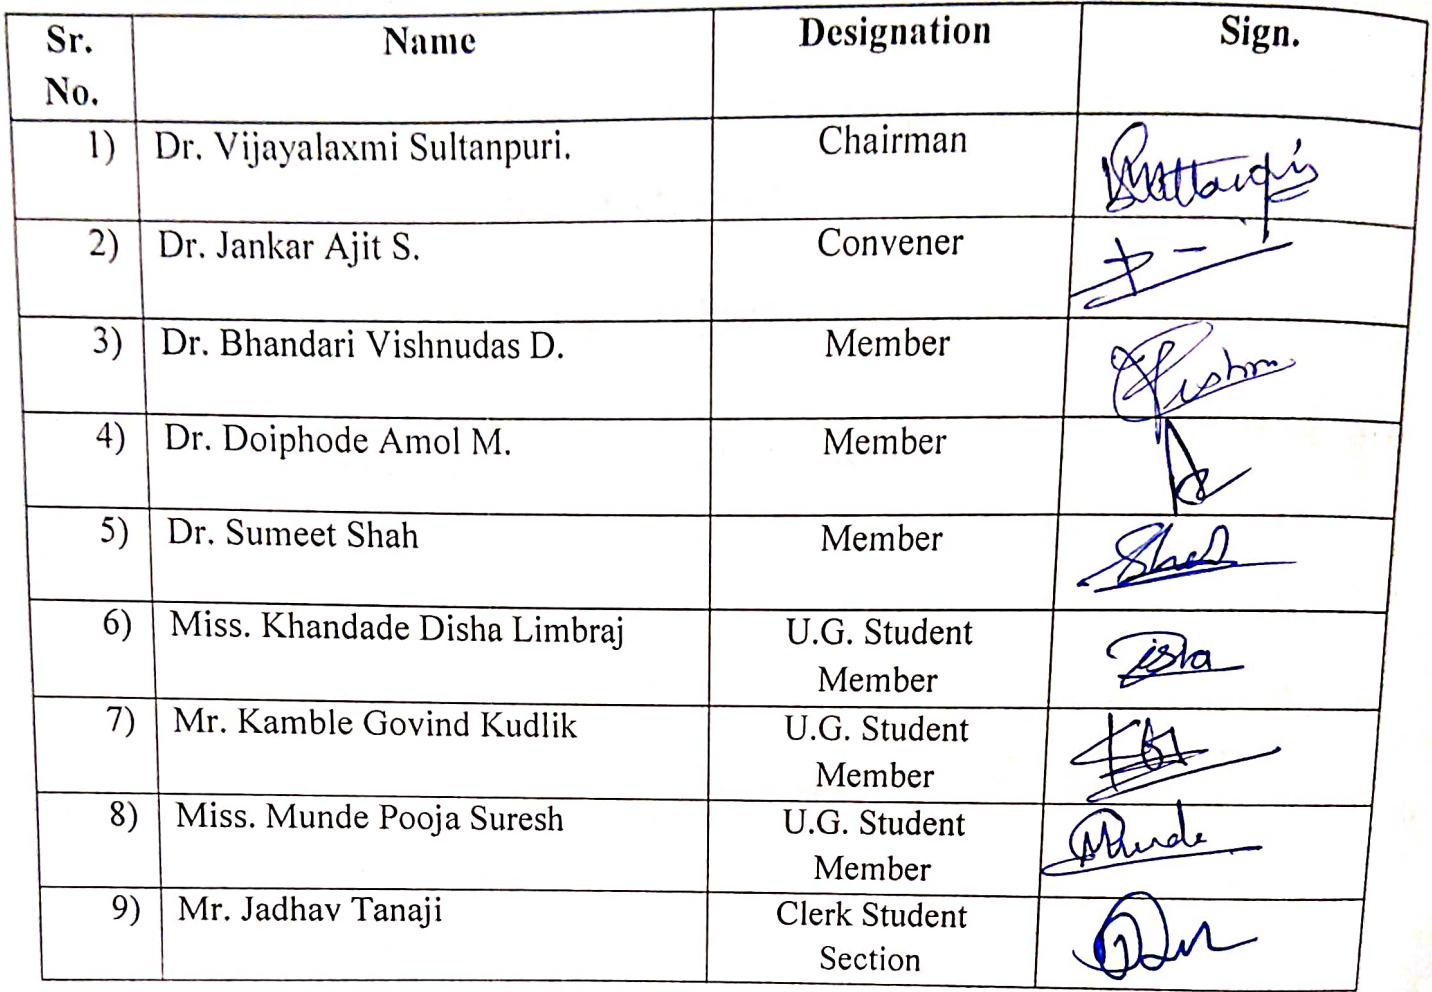 Sr. No. Name Designation Sign.
1) Dr. Vijayalaxmi Sultanpuri. Chairman
2) Dr. Jankar Ajit S. Convener
3) Dr. Bhandari Vishnudas D. Member
4) Dr. Doiphode Amol M. Member
5) Dr. Sumeet Shah Member Shah
6) Miss. Khandade Disha Limbraj U.G. Student Member
7) Mr. Kamble Govind Kudlik U.G. Student Member
8) Miss. Munde Pooja Suresh U.G. Student Member Munde
9) Mr. Jadhav Tanaji Clerk Student Section